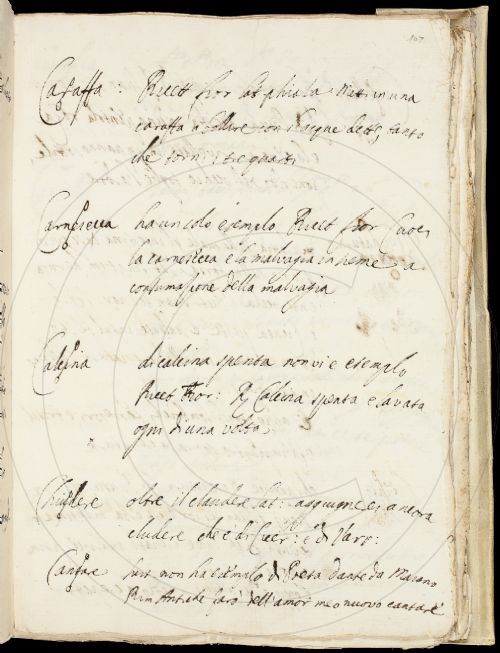 167
Caraffa : Ricett fior lat phiala Metti in una
caraffa a bollire con l'acque dette, tanto
che torni i tre quarti
Carnesecca ha un solo esempio Ricett fior Cuoci
la carnesecca e la malvagia insieme a
consumazione della malvagia
Calcina di calcina spenta non vi è esempio
Ricett fior: R Calcina spenta e lavata
ogni di una volta
Chiudere oltre il claudere lat: aggiugnere, ancora
cludere che è di Cicer: e di Varr:
Cantare sust non ha esempio di Poeta Dante da Maiano
Rim Antiche farò dell'amor meo nuovo cantare